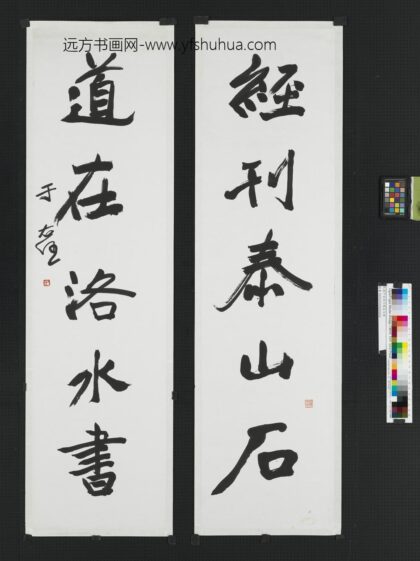 远方书画网-www.yfshuhua.com
經刊泰山石
道在洛水書
于右任